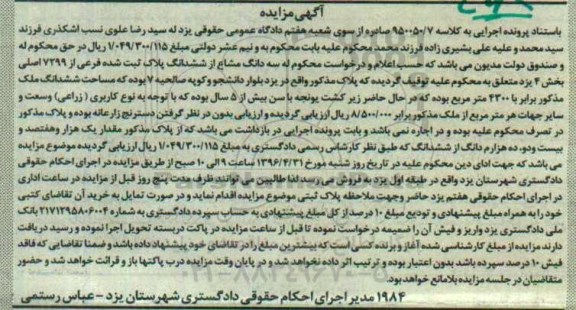 آگهی مزایده
باستناد پرونده اجرایی به کلاسه ۹۵۰۰۵۰/۷ صادره از سوی شعبه هفتم دادگاه عمومی حقوقی یزد له سید رضا علوی نسب اشکذری فرزند
سید محمد و علیه علی بشیری زاده فرزند محمد محکوم علیه بابت محکوم به و نیم عشر دولتی مبلغ ۱/۰۴۹/۳۰۰/۱۱۵ ریال در حق محکوم له
و صندوق دولت مدیون می باشد که حسب اعلام و درخواست محکوم له سه دانگ مشاع از ششدانگ پلاک ثبت شده فرعی از ۷۲۹۹ اصلی
بخش ۴ یزد متعلق به محکوم علیه توقیف گردیده که پلاک مذکور واقع در یزد بلوار دانشجو و کوچه صالحیه ۷ بوده که مساحت ششدانگ ملک
مذکور برابر با ۴۳۰۰ متر مربع بوده که در حال حاضر زیر کشت یونجه با سن بیش از ۵ سال بوده که با توجه به نوع کاربری ( زراعی) وسعت و
سایر جهات هر متر مربع از ملک مذکور برابر ۸/۵۰۰/۰۰۰ ریال ارزیابی گردیده و ارزیابی بدون در نظر گرفتن دسترنج زارعانه بوده و پلاک مذکور
در تصرف محکوم علیه بوده و در اجاره نمی باشد و بابت پرونده اجرایی در بازداشت می باشد که از پلاک مذکور مقدار یک هزار وهفتصد و
بیست ودو، ده هزارم دانگ از ششدانگ که طبق نظر کارشناس رسمی دادگستری به مبلغ ۱/۰۴۹/۳۰۰/۱۱۵ ریال ارزیابی گردیده موضوع مزایده
می باشد که جهت ادای دین محکوم علیه در تاریخ روز شنبه مورخ ۱۳۹۶/۴/۳۱ ساعت ۹ الی ۱۰ صبح از طریق مزایده در اجرای احکام حقوقی
دادگستری شهرستان یزد واقع در طبقه اول یزد به فروش می رسد لذا طالبین می توانند ظرف مدت پنج روز قبل از مزایده در ساعت اداری
در اجرای احکام حقوقی هفتم یزد حاضر و جهت ملاحظه پلاک ثبتی موضوع مزایده اقدام نماید و در صورت تمایل به خرید آن تقاضای کتبی
خود را به همراه مبلغ پیشنهادی و تودیع مبلغ ۱۰ درصد از کل مبلغ پیشنهادی به حساب سپرده دادگستری به شماره ۲۱۷۱۲۹۵۸۶۰۰۴ بانک
ملی دادگستری یزد واریز و فیش آن را ضمیمه درخواست نموده تا قبل از ساعت مزایده در پاکت دربسته تحویل اجرا نموده و رسید دریافت
دارند مزایده از مبلغ کارشناسی شده آغاز و برنده کسی است که بیشترین مبلغ را در تقاضای خود پیشنهاد داده باشد و ضمنا تقاضایی که فاقد
فیش ۱۰ درصد سپرده باشد بدون اعتبار بوده و ترتیب اثر داده نخواهد شد و در پایان وقت مزایده درب پاکتها باز و قرائت خواهد شد و حضور
متقاضیان در جلسه مزایده بلامانع خواهد بود.
۱۹۸۴ مدیر اجرای احکام حقوقی دادگستری شهرستان یزد - عباس رستمی